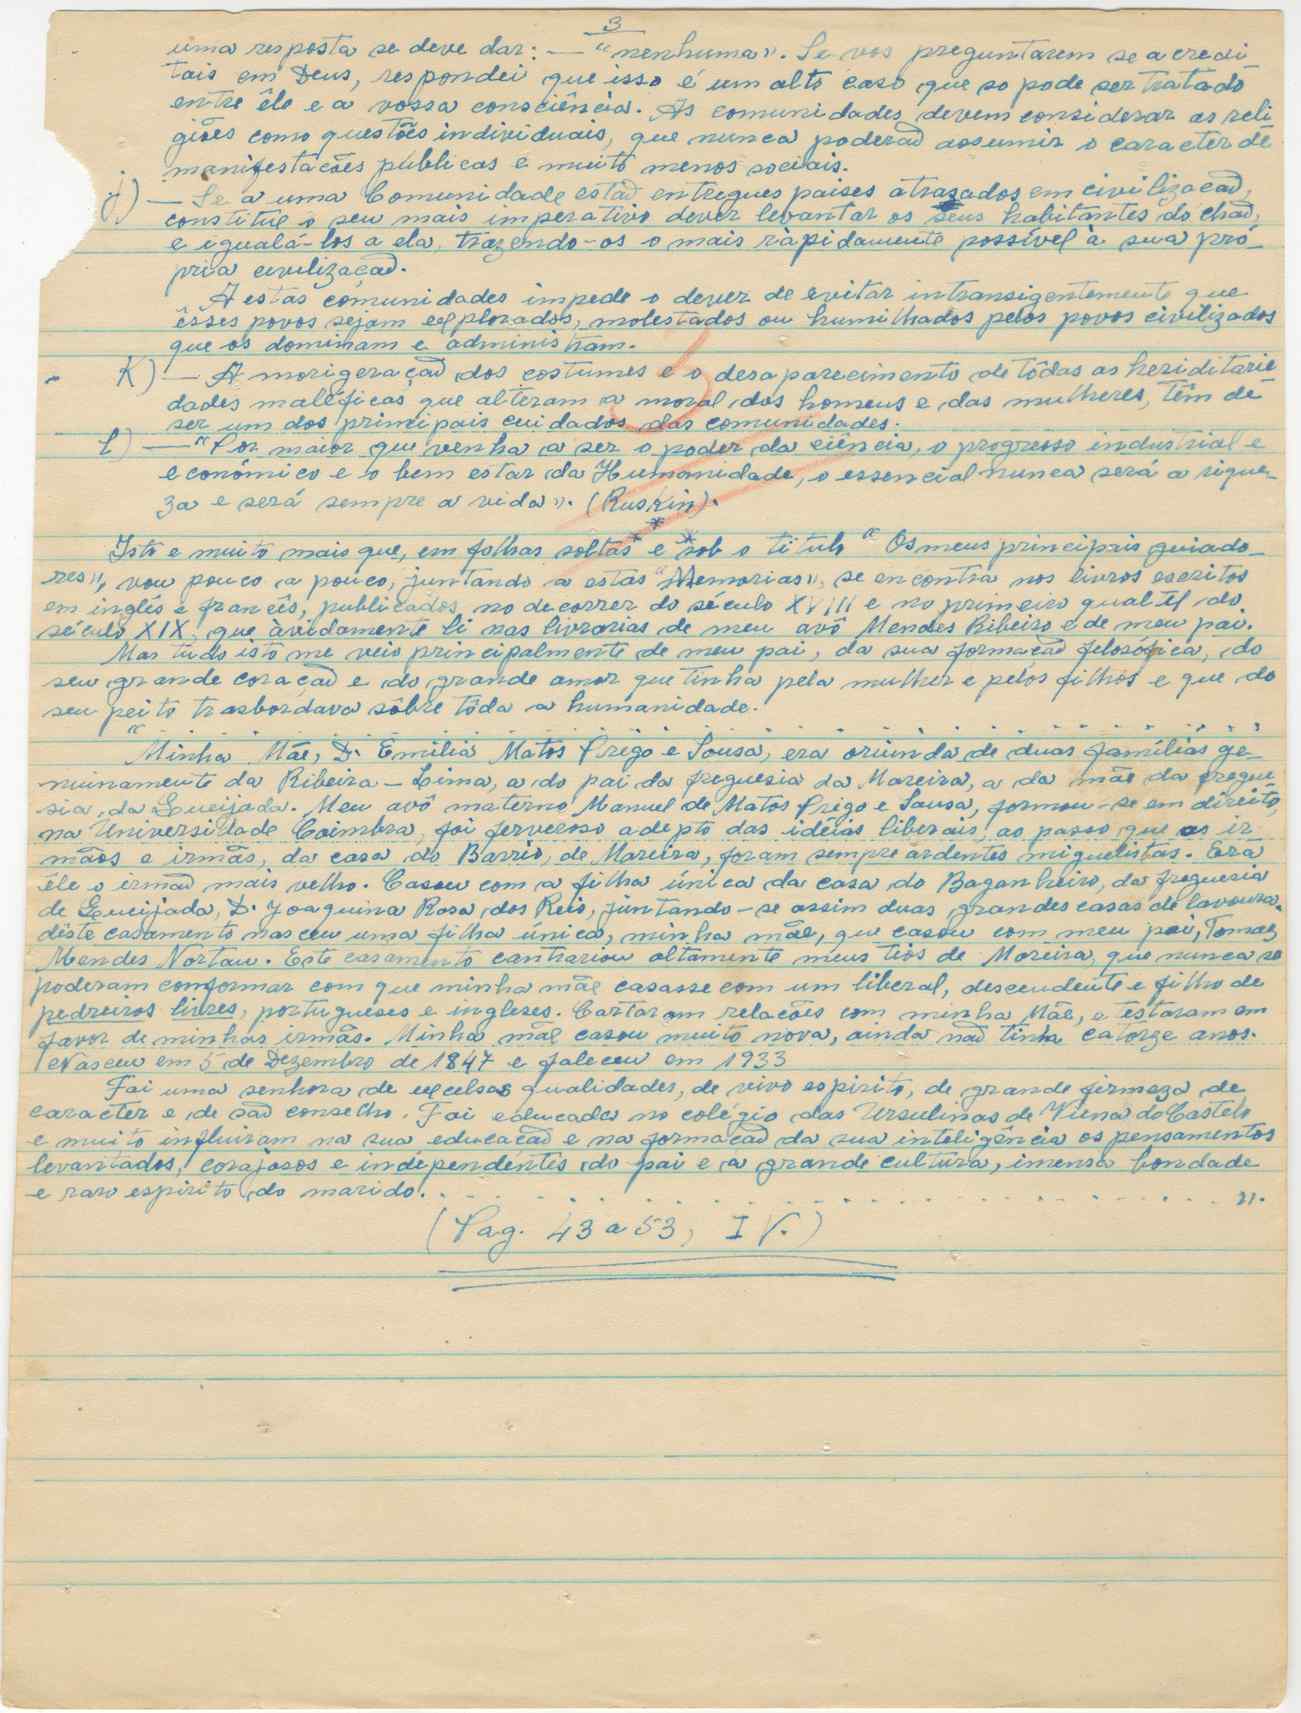 3
uma resposta se deve dar: — "nenhuma". Se vos preguntarem se acredi-
tais em Deus, respondei que isso é um alto caso que so pode ser tratado
entre êle e a vossa consciência. As comunidades devem considerar as reli-
giões como questões individuais, que nunca poderaõ assumir o caracter de
manifestações públicas e muito menos sociais.
j) — Se a uma Comunidade estaõ entregues paises atrasados em civilizaçaõ,
constitue o seu mais imperativo dever levantar os seus habitantes do chaõ,
e egualá-los a ela, trazendo-os o mais ràpidamente possível à sua pró-
pria civilizaçaõ.
A estas comunidades impede o dever de evitar intransigentemente que
êsses povos sejam explorados, molestados ou humilhados pelos povos civilizados
que os dominam e administram.
K) — A morigeraçaõ dos costumes e o desaparecimento de tôdas as heriditarie
dades maléficas que alteram a moral dos homens e das mulheres, têm de
ser um dos principais cuidados das comunidades.
l) — "Por maior que venha a ser o poder da ciência, o progresso industrial e
económico e o bem estar da Humanidade, o essencial nunca será a rique-
za e será sempre a vida". (Ruskin).
* * *
Isto e muito mais que, em folhas soltas e sob o titulo "Os meus principais guiado-
res", vou pouco a pouco, juntando a estas "Memorias", se encontra nos livros escritos
em inglês e francês, publicados no decorrer do século XVIII e no primeiro quartel do
século XIX, que àvidamente li nas livrarias de meu avô Mendes Ribeiro e de meu pai.
Mas tudo isto me veio principalmente de meu pai, da sua formaçaõ filosófica, do
seu grande coraçaõ e do grande amor que tinha pela mulher e pelos filhos e que do
seu peito trasbordava sôbre tôda a humanidade.
"Minha Mãe, D. Emilia Matos Prego e Sousa, era oriunda de duas famílias ge-
nuinamente da Ribeira-Lima, a do pai da freguesia da Moreira, a da mãe da fregue
sia da Gueijada. Meu avô materno, Manuel de Matos Prego e Sousa, formou-se em direito,
na Universidade Coimbra, foi fervoroso adepto das idéias liberais, ao passo que os ir
mãos e irmãs, da casa do Barrio, de Moreira, foram sempre ardentes miguelistas. Era
êle o irmaõ mais velho. Casou com a filha única da casa do Baganheiro, da freguesia
de Gueijada, D. Joaquina Rosa dos Reis, juntando-se assim duas grandes casas de lavoura.
dêste casamento nasceu uma filha única, minha mãe, que casou com meu pai, Tomaz
Mendes Norton. Este casamento contrariou altamente meus tios de Moreira, que nunca se
poderam conformar com que minha mãe casasse com um liberal, descendente e filho de
pedreiros livres, portugueses e ingleses. Cortaram relações com minha Mãe, e testaram em
favor de minhas irmãs. Minha mãe casou muito nova, ainda naõ tinha catorze anos.
Nasceu em 5 de Dezembro de 1847 e faleceu em 1933
Foi uma senhora de excelsas qualidades, de vivo espirito, de grande firmeza de
caracter e de saõ conselho. Foi educada no colégio das Ursulinas de Viana do Castelo
e muito influiram na sua educaçaõ e na formaçaõ da sua inteligência os pensamentos
levantados, corajosos e independentes do pai e a grande cultura, imensa bondade
e raro espirito do marido. . . . . . . . . . . . . . . . . . . . . . ".
(Pag. 43 a 53, IV.)